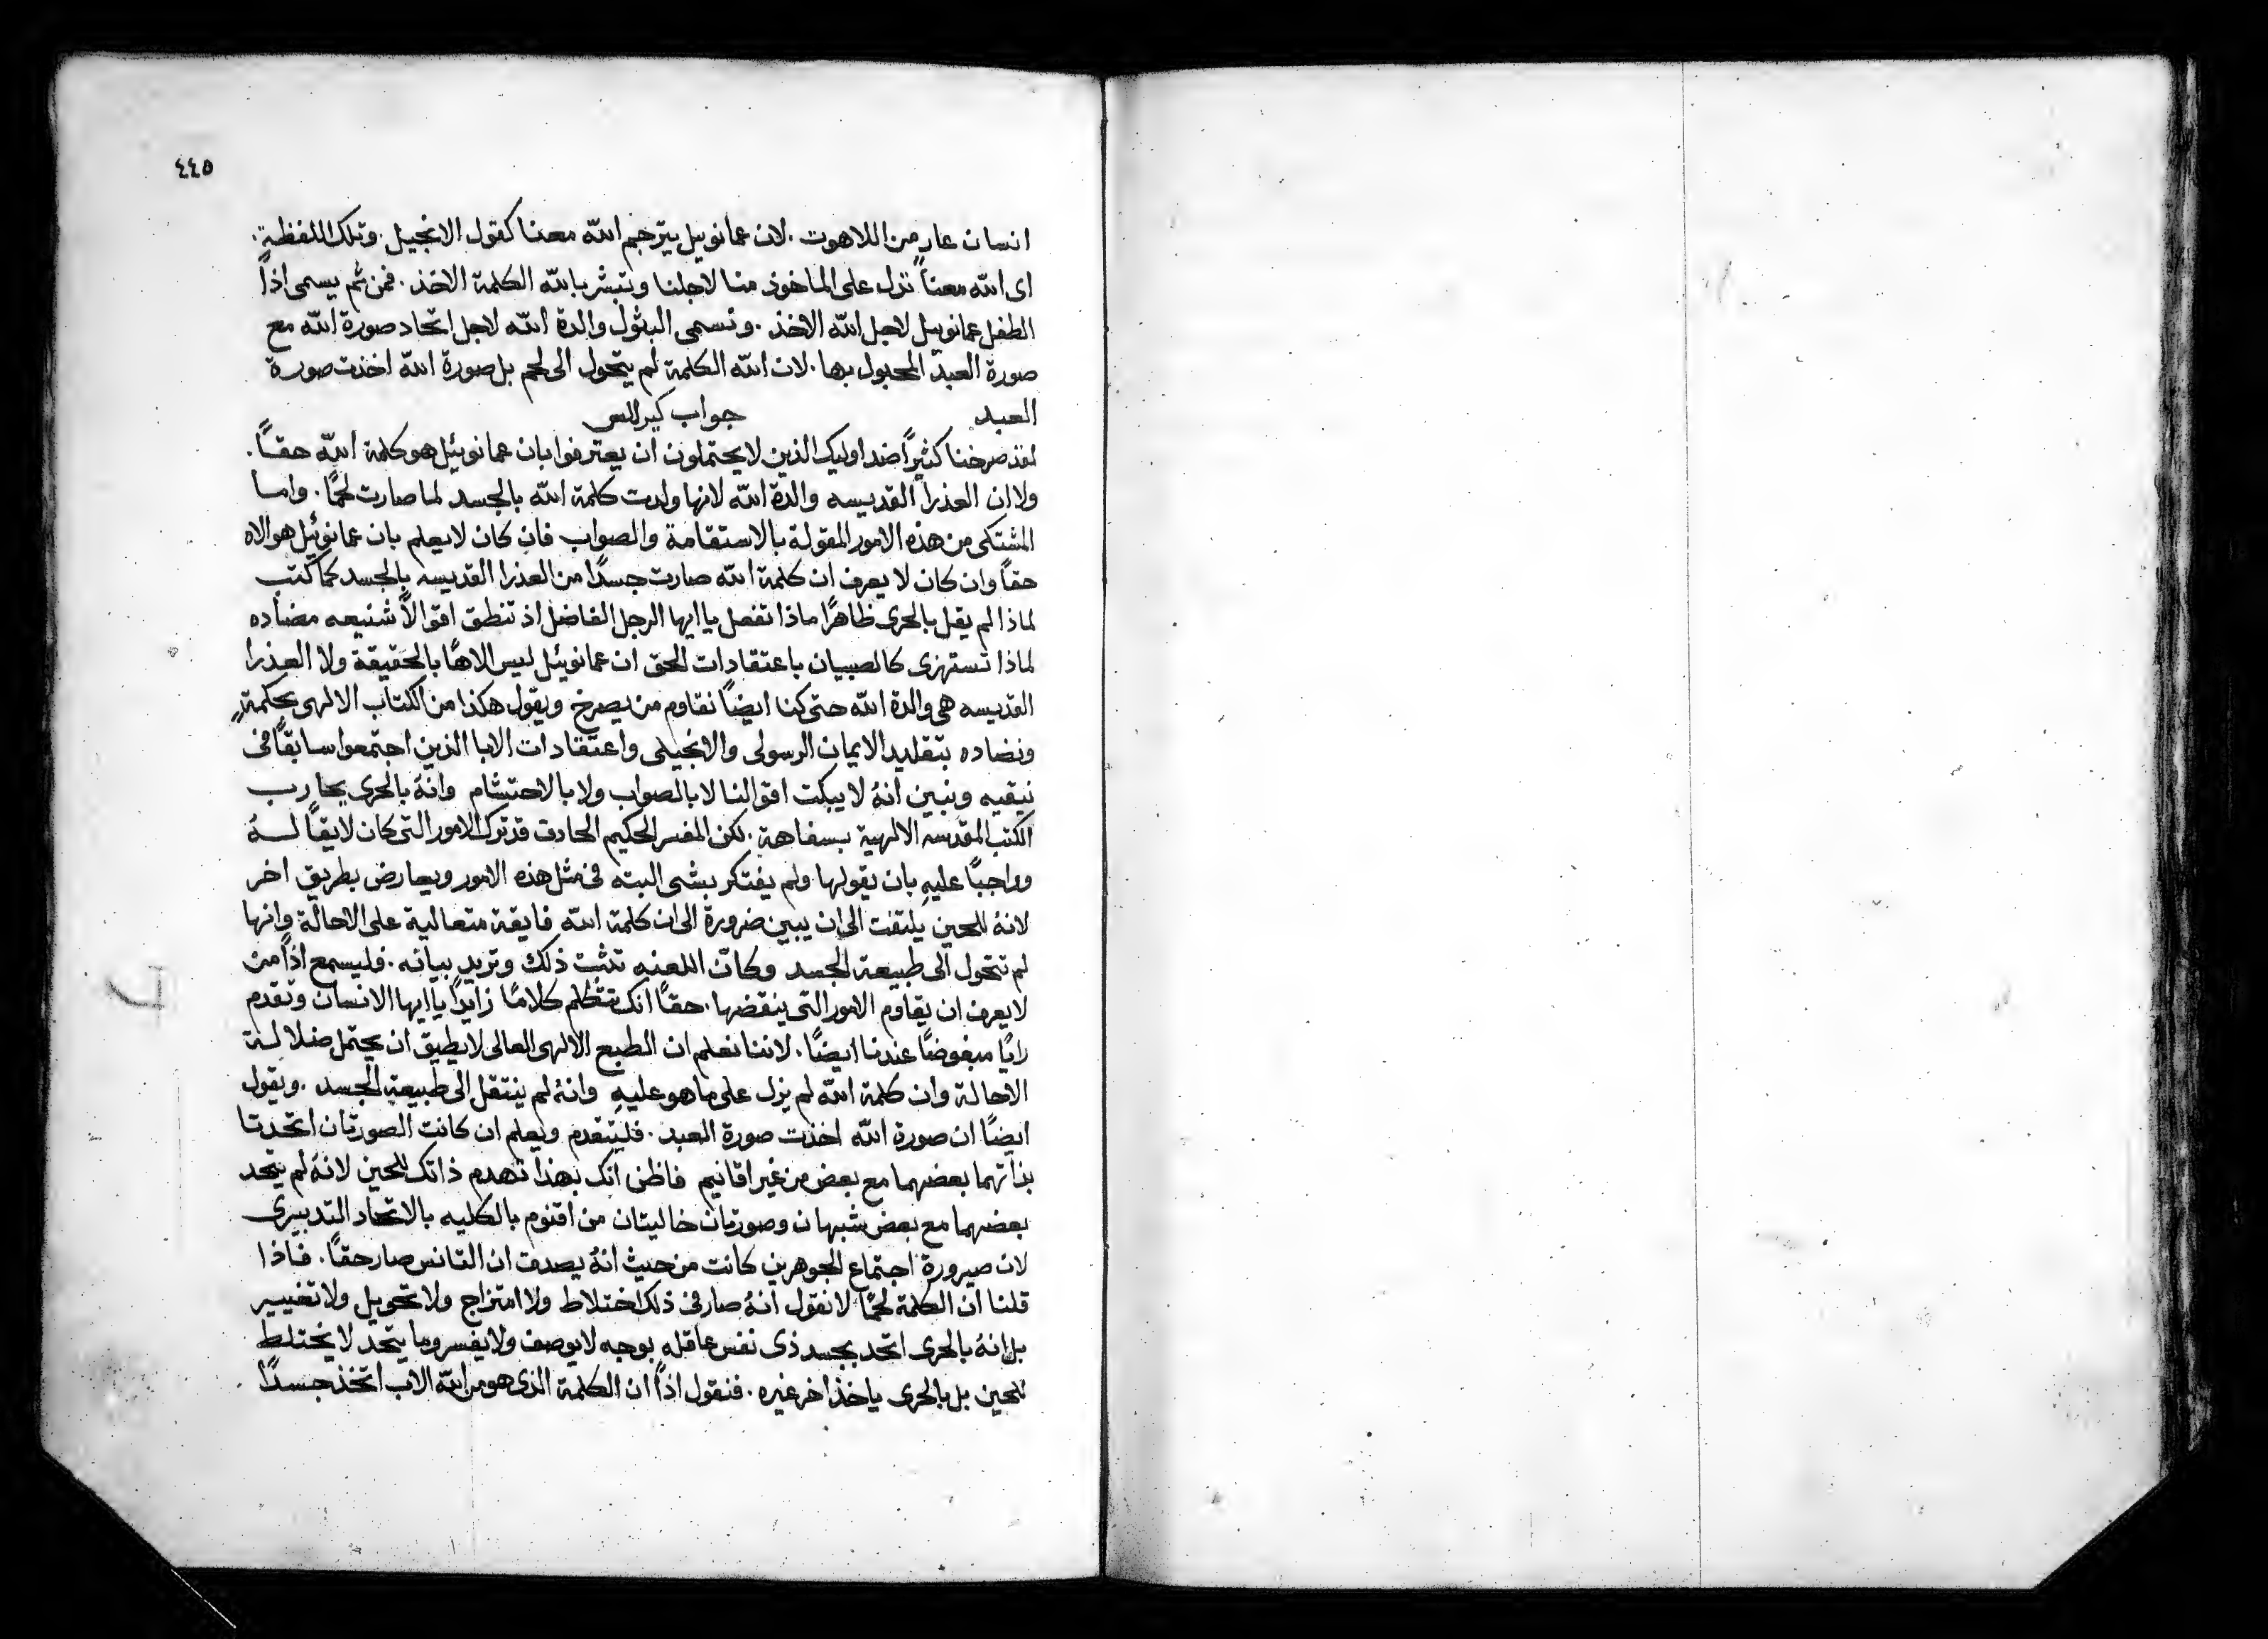 ٤٤٥
انسان عارٍ من اللاهوت. لان عمانوييل يترجم الله معنا كقول الانجيل. وتلك اللفظة.
اى الله معنا تدل على الماخوذ منا لاجلنا وتبشر بالله الكلمة الاخذ. فمن ثم يسمى اذاً
الطفل عمانوييل لاجل الله الاخذ. وتسمى البتول والدة الله لاجل اتحاد صورة الله مع
صورة العبد المحبول بها. لان الله الكلمة لم يتحول الى لحم بل صورة الله اخذت صورة
العبد جواب كيرللس
لقد صرخنا كثيرًا ضد اوليك الذين لا يحتملون ان يعترفوا بان عمانوئيل هو كلمة الله حقاً.
ولا ان العذرا القديسه والدة الله لانها ولدت كلمة الله بالجسد لما صارت لحمًا. واما
المشتكى من هذه الامور المقولة بالاستقامة والصواب فان كان لا يعلم بان عمانوئيل هو الاه
حقاً وان كان لا يعرف ان كلمة الله صارت جسدًا من العذرا القديسه بالجسد كما كتب
لماذا لم يقل بالحرى ظاهرًا ماذا تفعل يا ايها الرجل الفاضل اذ تنطق اقوالاً شنيعه مضاده
لماذا تستهزى كالصبيان باعتقادات الحق ان عمانوئيل ليس الاهًا بالحقيقة ولا العذرا
القديسه هى والدة الله حتى كنا ايضًا نقاوم من يصرخ ويقول هكذا من الكتاب الالهى بحكمةٍ
ونضاده بتقليد الايمان الرسولى والانجيلى واعتقادات الابا الذين اجتمعوا سابقاً فى
نيقيه ونبين انهُ لا يبكت اقوالنا لا بالصواب ولا بالاحتشام وانهُ بالحرى يحارب
الكتب المقدسه الالهية بسفاهة. لكن المفسر الحكيم الحاذق قد ترك الامور التى كان لايقاً لهُ
وواجباً عليهِ بان يقولها ولم يفتكر بشى البته فى مثل هذه الامور ويعارض بطريق اخر
لانهُ للحين يلتفت الى ان يبين ضرورة الى ان كلمة الله فايقة متعالية على الاحالة وانها
لم تتحول الى طبيعة الجسد وكانّ اللعنه تثبت ذلك وتريد بيانه. فليسمع اذاً من
لا يعرف ان يقاوم الامور التى ينقضها. حقاً انك تتكلم كلامًا زايدًا يا ايها الانسان وتقدم
رايًا مبغوضًا عندنا ايضًا. لاننا نعلم ان الطبع الالهى العالى لا يطيق ان يحتمل ضلالة
الاحالة وان كلمة الله لم يزل على ما هو عليهِ وانهُ لم ينتقل الى طبيعة الجسد. ويقول
ايضًا ان صورة الله اخذت صورة العبد. فليتقدم ويعلم ان كانت الصورتان اتحدتا
بذاتهما بعضهما مع بعض من غير اقانيم فاظن انك بهذا تهدم ذاتك للحين لانهُ لم يتحد
بعضهما مع بعض شبهان وصورتان خاليتان من اقنوم بالكليه بالاتحاد التدبيرى
لان صيرورة اجتماع الجوهرين كانت من حيث انهُ يصدق ان التانس صار حقاً. فاذا
قلنا ان الكلمة لحمًا لا نقول انهُ صار فى ذلك اختلاط ولا امتزاج ولا تحويل ولا تغيير
بل انهُ بالحرى اتحد بجسد ذى نفس عاقله بوجه لا يوصف ولا يفسر وما يتحد لا يختلط
للحين بل بالحرى ياخذ اخر غيره. فنقول اذاً ان الكلمة الذى هو من الله الاب اتخذ جسدًا